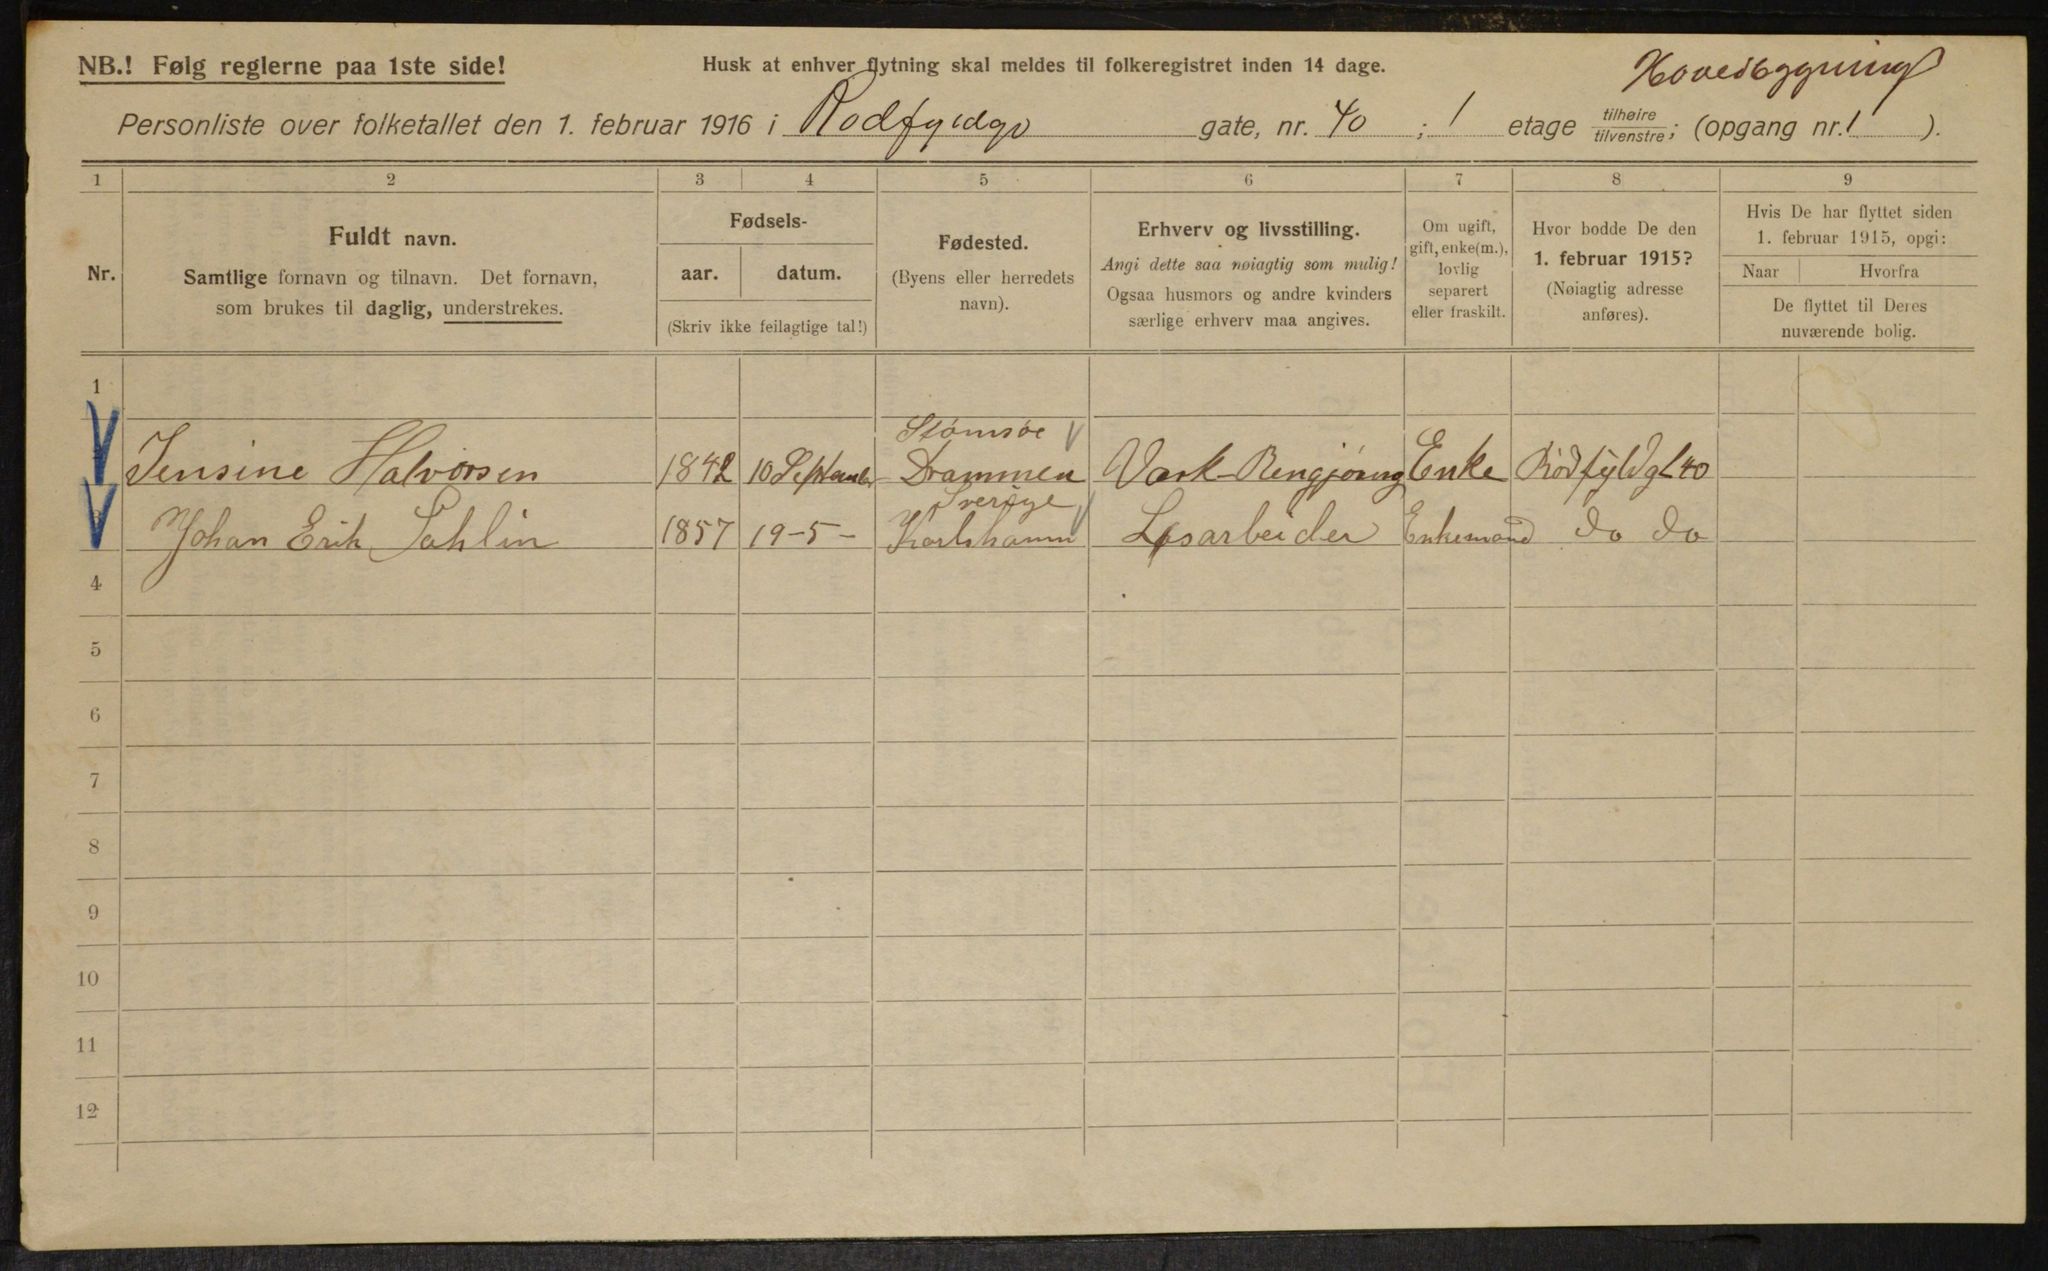 NB.! Følg reglerne paa 1ste side!
Husk at enhver flytning skal meldes til folkeregistret inden 14 dage.
Hovedbygning
Personliste over folketallet den 1. februar 1916 i Rodfyldgt gate, nr. 40 ; 1 etage tilhøire tilvenstre; (opgang nr. 1 ).
1 2 3 4 5 6 7 8 9
Nr.
Fuldt navn.
Samtlige fornavn og tilnavn. Det fornavn,
som brukes til daglig, understrekes.
Fødsels-
aar. datum.
(Skriv ikke feilagtige tal!)
Fødested.
(Byens eller herredets
navn).
Erhverv og livsstilling.
Angi dette saa nøiagtig som mulig!
Ogsaa husmors og andre kvinders
særlige erhverv maa angives.
Om ugift,
gift, enke(m.),
lovlig
separert
eller fraskilt.
Hvor bodde De den
1. februar 1915?
(Nøiagtig adresse
anføres).
Hvis De har flyttet siden
1. februar 1915, opgi:
Naar Hvorfra
De flyttet til Deres
nuværende bolig.
1
Stømsøe
2 Jensine Halvorsen 1842 10 September Drammen Vask-Rengjøring Enke Rödfyldgt 40
Sverige
3 Johan Erik Sahlin 1857 19-5- Karlshamn Løsarbeider Enkemand do do
4
5
6
7
8
9
10
11
12